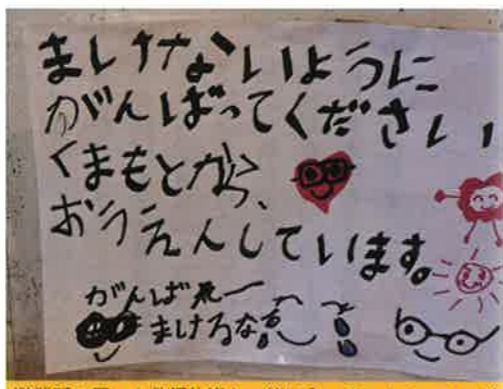 ましけないように
がんばってください
くまもとから、
おうえんしています。
がんばれー
まけるな!